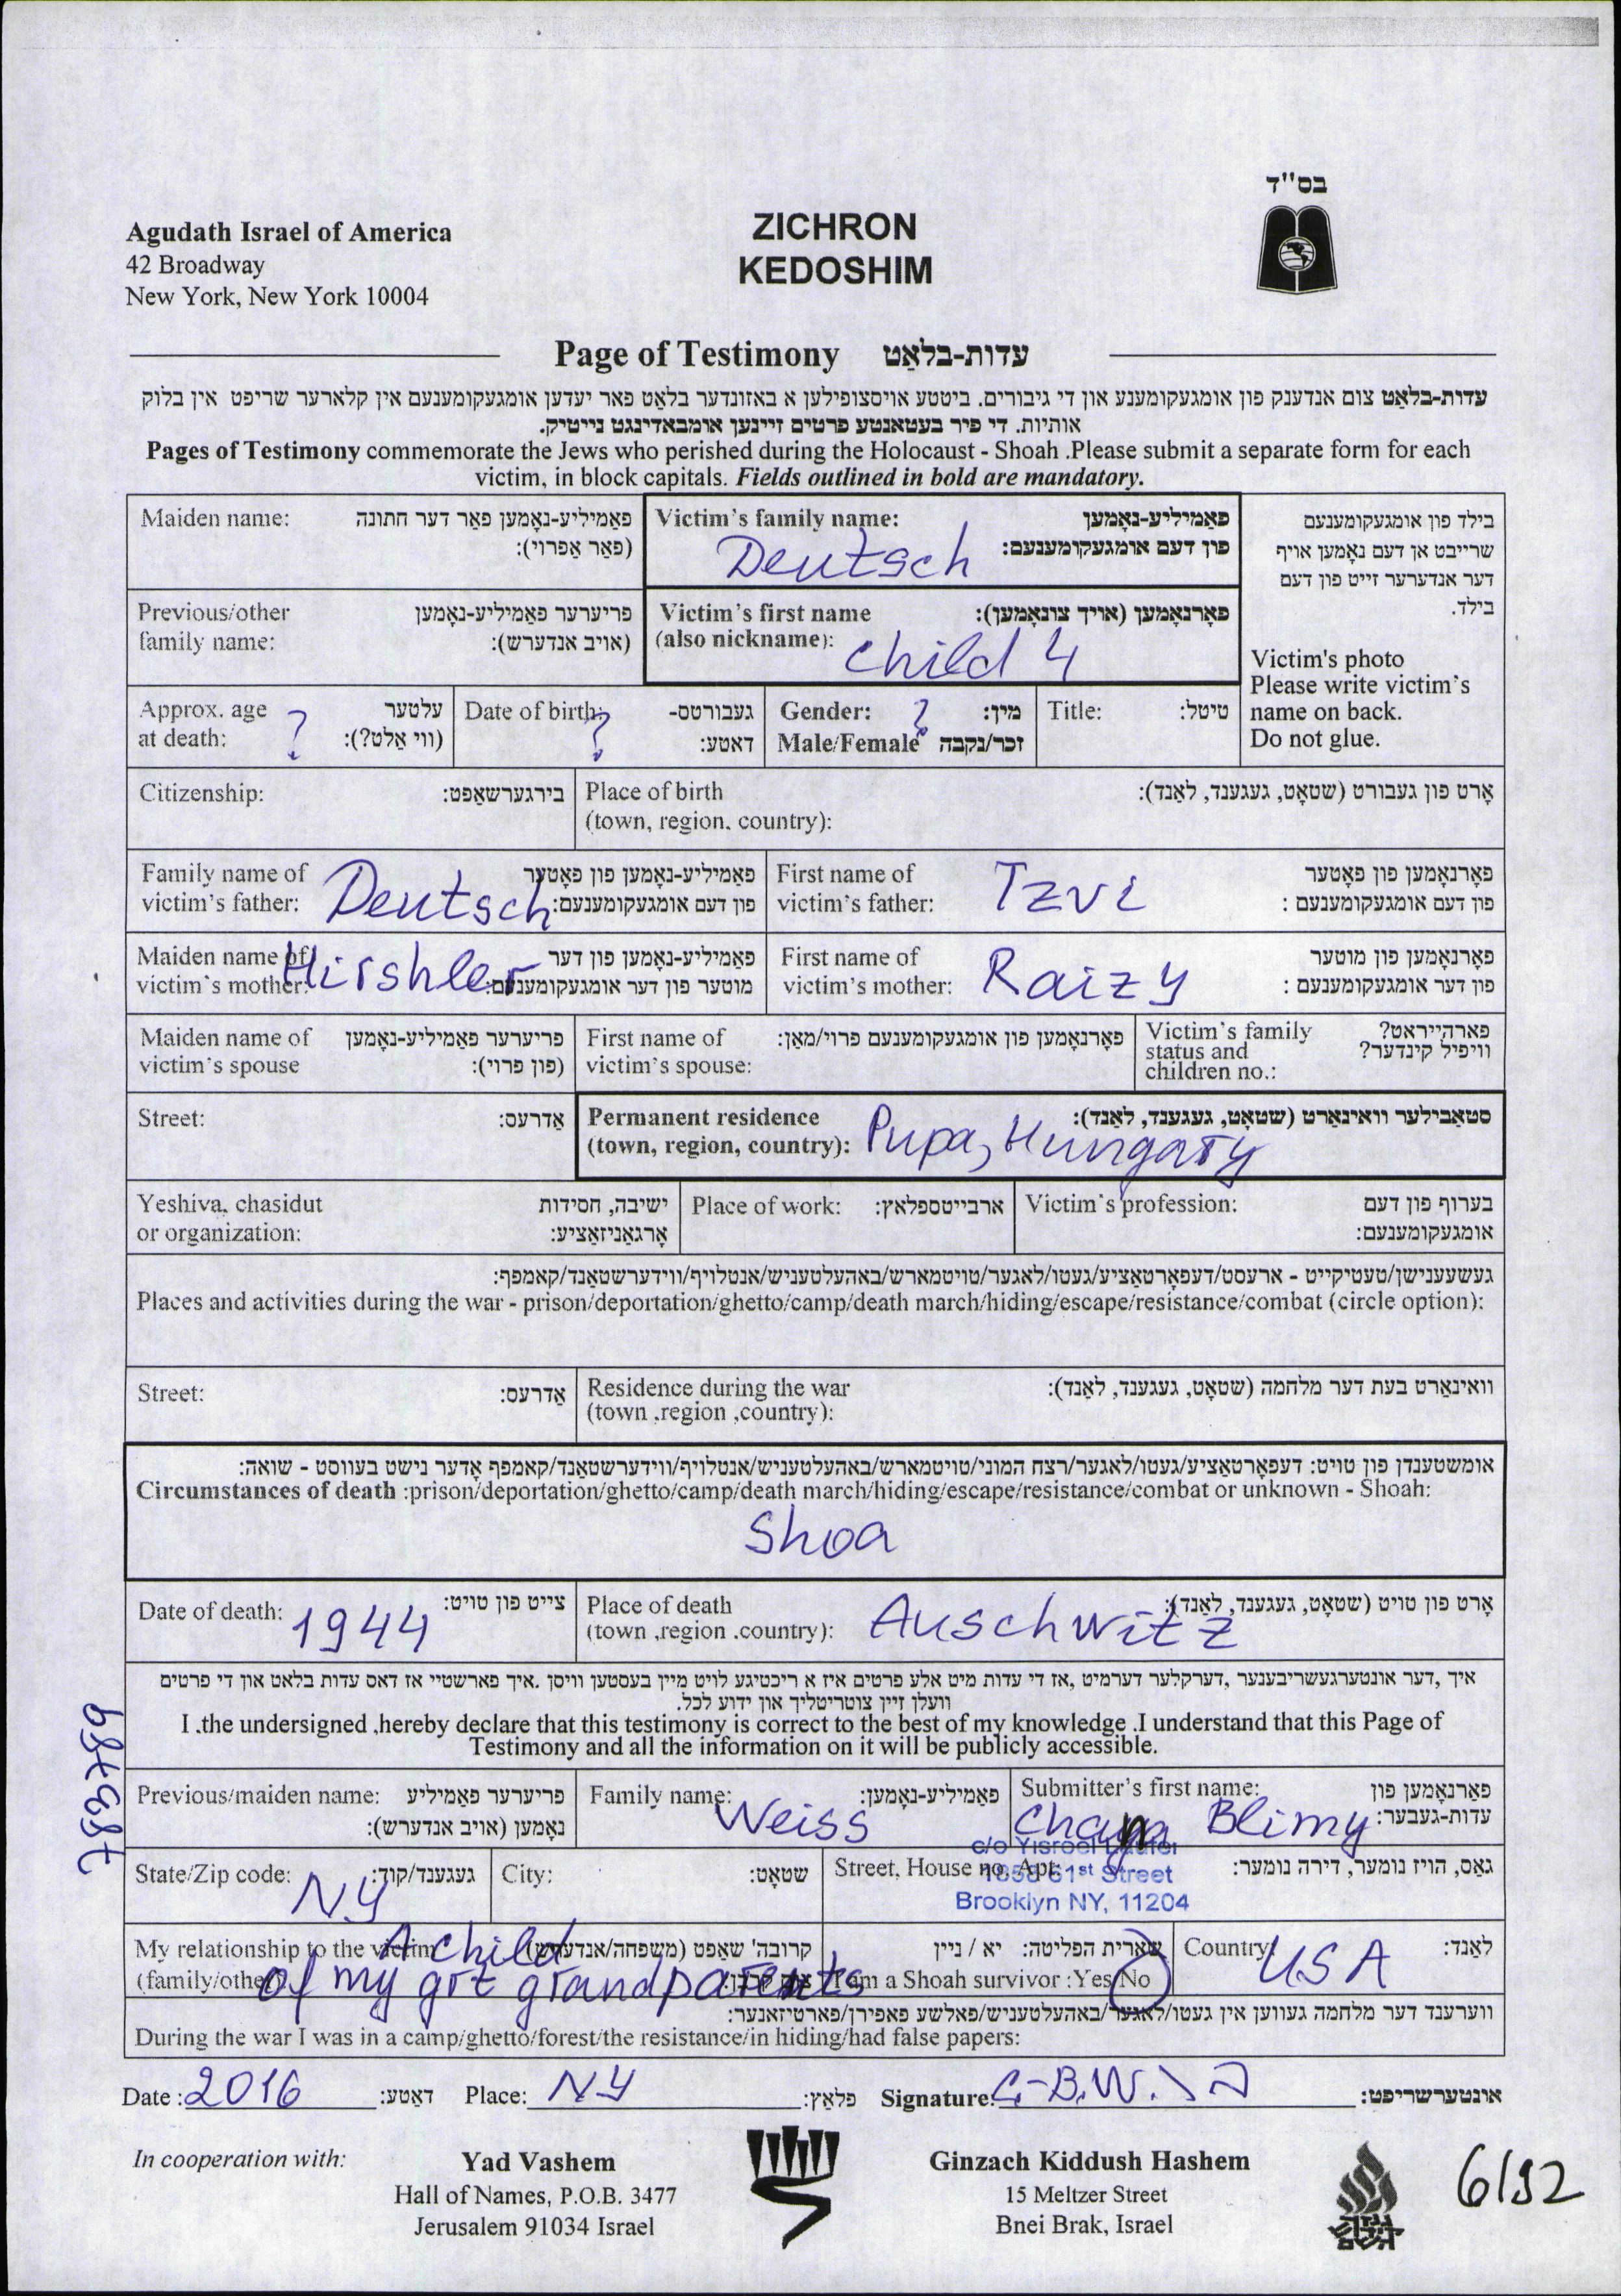 בס"ד
Agudath Israel of America
42 Broadway
New York, New York 10004
ZICHRON
KEDOSHIM
Page of Testimony עדות-בלאַט
עדות-בלאַט צום אנדענק פון אומגעקומענע און די גיבורים. ביטטע אויסצופילען א באזונדער בלאַט פאר יעדען אומגעקומענעם אין קלארער שריפט אין בלוק
אותיות. די פיר בעטאנטע פרטים זיינען אומבאדינגט נייטיק.
Pages of Testimony commemorate the Jews who perished during the Holocaust - Shoah .Please submit a separate form for each
victim, in block capitals. Fields outlined in bold are mandatory.
Maiden name: פאַמיליע-נאָמען פאַר דער חתונה
(פאַר אַפרוי):
Victim's family name: פאַמיליע-נאָמען
פון דעם אומגעקומענעם:
Deutsch
בילד פון אומגעקומענעם
שרייבט אן דעם נאָמען אויף
דער אנדערער זייט פון דעם
בילד.
Victim's photo
Please write victim's
name on back.
Do not glue.
Previous/other פריערער פאַמיליע-נאָמען
family name: (אויב אנדערש):
Victim's first name פאָרנאָמען (אויך צונאָמען):
(also nickname):
Child 4
Approx. age עלטער
at death: ? (ווי אַלט?):
Date of birth: ? געבורטס-
דאטע:
Gender: ? מין:
Male/Female זכר/נקבה
Title: טיטל:
Citizenship: בירגערשאַפט:
Place of birth אָרט פון געבורט (שטאָט, געגענד, לאַנד):
(town, region, country):
Family name of פאַמיליע-נאָמען פון פאָטער
victim's father: Deutsch פון דעם אומגעקומענעם:
First name of Tzvi פאָרנאָמען פון פאָטער
victim's father: פון דעם אומגעקומענעם :
Maiden name of Hirshler פאַמיליע-נאָמען פון דער
victim's mother: מוטער פון דער אומגעקומענעם:
First name of פאָרנאָמען פון מוטער
victim's mother: Raizy פון דער אומגעקומענעם :
Maiden name of פריערער פאַמיליע-נאָמען
victim's spouse (פון פרוי):
First name of פאָרנאָמען פון אומגעקומענעם פרוי/מאַן:
victim's spouse:
Victim's family פארהייראט?
status and וויפיל קינדער?
children no.:
Street: אַדרעס:
Permanent residence סטאַבילער וואוינאָרט (שטאָט, געגענד, לאַנד):
(town, region, country): Pupa, Hungary
Yeshiva, chasidut ישיבה, חסידות
or organization: אָרגאַניזאַציע:
Place of work: ארבייטספלאץ:
Victim's profession: בערוף פון דעם
אומגעקומענעם:
געשעענישן/טעטיקייט - ארעסט/דעפאָרטאַציע/געטו/לאגער/טויטמארש/באהעלטעניש/אנטלויף/ווידערשטאַנד/קאמפף:
Places and activities during the war - prison/deportation/ghetto/camp/death march/hiding/escape/resistance/combat (circle option):
Street: אַדרעס:
Residence during the war וואוינאָרט בעת דער מלחמה (שטאָט, געגענד, לאַנד):
(town ,region ,country):
אומשטענדן פון טויט: דעפאָרטאַציע/געטו/לאגער/רצח המוני/טויטמארש/באהעלטעניש/אנטלויף/ווידערשטאַנד/קאמפף אָדער נישט בעווסט - שואה:
Circumstances of death :prison/deportation/ghetto/camp/death march/hiding/escape/resistance/combat or unknown - Shoah:
Shoa
Date of death: 1944 צייט פון טויט:
Place of death אָרט פון טויט (שטאָט, געגענד, לאַנד):
(town ,region .country): Auschwitz
איך ,דער אונטערגעשריבענער ,דערקלער דערמיט ,אז די עדות מיט אלע פרטים איז א ריכטיגע לויט מיין בעסטען וויסן .איך פארשטיי אז דאס עדות בלאט און די פרטים
וועלן זיין צוטריטליך און ידוע לכל.
I .the undersigned ,hereby declare that this testimony is correct to the best of my knowledge .I understand that this Page of
Testimony and all the information on it will be publicly accessible.
Previous/maiden name: פריערער פאַמיליע
נאָמען (אויב אנדערש):
Family name: Weiss פאַמיליע-נאָמען:
Submitter's first name: פאַרנאָמען פון
Chaya Blimy עדות-געבער:
State/Zip code: NY געגענד/קוד:
City: שטאָט:
Street, House no, Apt: גאַס, הויז נומער, דירה נומער:
c/o Yisroel Laufer
1858 61st Street
Brooklyn NY, 11204
My relationship to the victim קרובה' שאַפט (משפחה/אנדערש)
(family/other
A child
of my grt grandparents
שארית הפליטה: יא / ניין
I am a Shoah survivor :Yes/No
Country USA לאַנד:
ווערענד דער מלחמה געווען אין געטו/לאַגער/באהעלטעניש/פאלשע פאפירן/פארטיזאנער:
During the war I was in a camp/ghetto/forest/the resistance/in hiding/had false papers:
Date : 2016 דאַטע: Place: NY פלאַץ: Signature: C-B.W. אונטערשריפט:
In cooperation with:
Yad Vashem
Hall of Names, P.O.B. 3477
Jerusalem 91034 Israel
Ginzach Kiddush Hashem
15 Meltzer Street
Bnei Brak, Israel
6/92